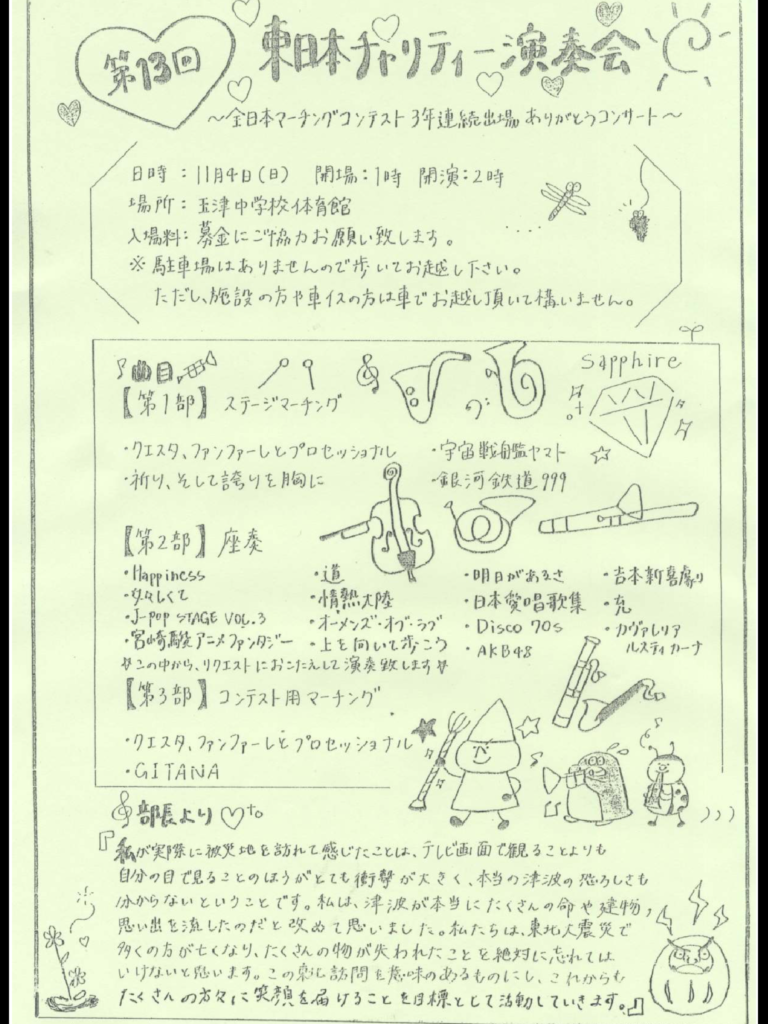 第13回
東日本チャリティー演奏会
〜全日本マーチングコンテスト 3年連続出場 ありがとうコンサート〜
日時：11月4日(日) 開場：1時 開演：2時
場所：玉津中学校体育館
入場料：募金にご協力お願い致します。
※駐車場はありませんので歩いてお越し下さい。
ただし、施設の方や車イスの方は車でお越し頂いて構いません。
曲目
sapphire
【第1部】 ステージマーチング
・クエスタ、ファンファーレとプロセッショナル ・宇宙戦艦ヤマト
・祈り、そして誇りを胸に ・銀河鉄道999
【第2部】 座奏
・Happiness ・道 ・明日があるさ ・吉本新喜劇
・女々しくて ・情熱大陸 ・日本愛唱歌集
・J-POP STAGE VOL.3 ・オーメンズ・オブ・ラブ ・Disco 70s ・カヴァレリア
・宮崎駿アニメファンタジー ・上を向いて歩こう ・AKB48 ルスティカーナ
この中から、リクエストにおこたえして演奏致します
【第3部】 コンテスト用マーチング
・クエスタ、ファンファーレとプロセッショナル
・GITANA
部長より
『私が実際に被災地を訪れて感じたことは、テレビ画面で観ることよりも
自分の目で見ることのほうがとても衝撃が大きく、本当の津波の恐ろしさも
分からないということです。私は、津波が本当にたくさんの命や建物、
思い出を流したのだと改めて思いました。私たちは、東北大震災で
多くの方が亡くなり、たくさんの物が失われたことを絶対に忘れては
いけないと思います。この東北訪問を意味のあるものにし、これからも
たくさんの方々に笑顔を届けることを目標として活動していきます。』